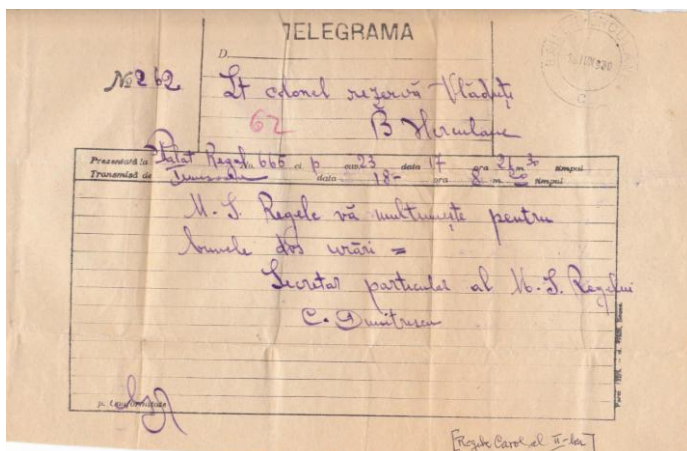 TELEGRAMA
D
№262
Lt colonel rezervă Vlăduți
62
B Herculane
Prezentată la Palat Regal No. 665 cl p cuv. 23 data 17 ora 2 m 30 timpul
Transmisă de Timisoara data 18- ora 8 m 20 timpul
M. S. Regele vă multumește pentru
bunele dvs urări =
Secretar particular al M. S. Regelui
C. Dumitrescu
p. Conformitate
[Regele Carol al II-lea]